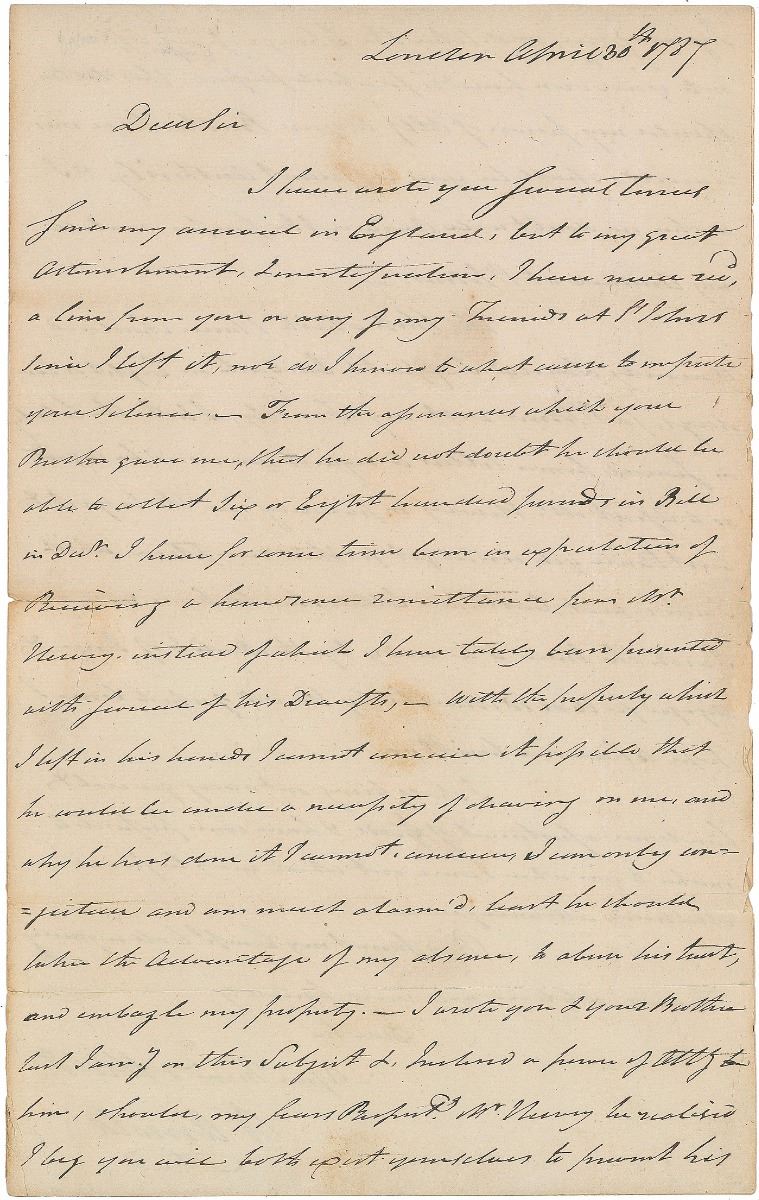 London April 30th 1787
Dear Sir
I have wrote you Several times
Since my arrival in England, but to my great
Astonishment, & mortification, I have never rec'd,
a line from you or any of my Friends at St Johns
since I left it, nor do I know to what cause to impute
your Silence. — From the assurances which your
Brother gave me, that he did not doubt he should be
able to collect Six or Eight hundred pounds in Bills
in I have for some time been in expectation of
Receiving a handsome remittance from Mr.
instead of which I have lately been presented
with Several of his Draughts, — With the property which
I left in his hands I cannot conceive it possible that
he could be under a necessity of drawing on me, and
why he has done it I cannot conceive, I can only con=
=jecture and am much alarm'd, least he should
take the Advantage of my absence, to abuse his trust,
and embazle my property. — I wrote you & your Brother
last Jany on this Subject & Inclosed a power of Atty to
him, should, my fears Respectg Mr. be realised
I beg you will both exert yourselves to prevent his